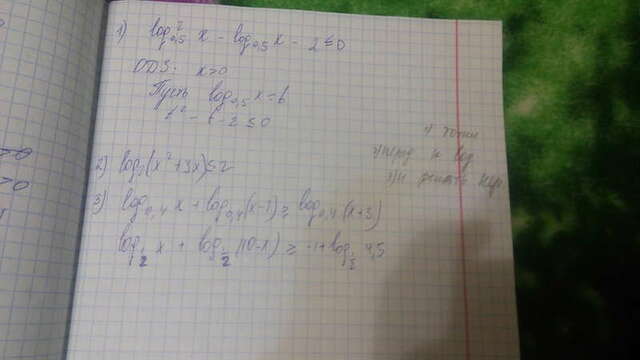 1) log²₀,₅ x - log₀,₅ x - 2 ≤ 0
ОДЗ: x>0
Пусть log₀,₅ x = t
t² - t - 2 ≤ 0
2) (x² + 3x) ≤ 2
3) log₀,₄ x + log₀,₄ (x-1) ≥ log₀,₄ (x+3)
log½ x + log½ (10-x) ≥ -1 + log½ 4,5